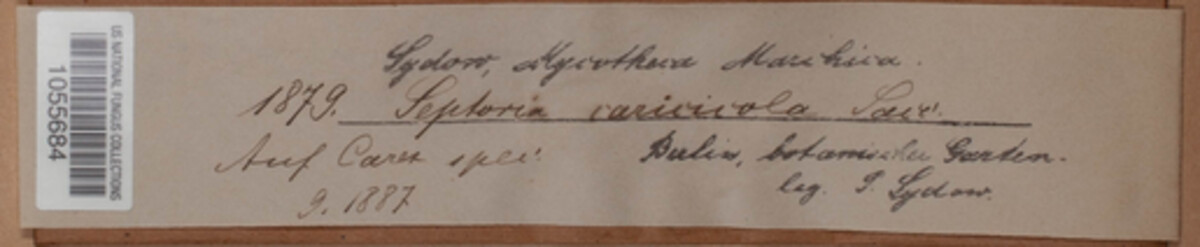 US NATIONAL FUNGUS COLLECTIONS
1055684
Sydow, Mycotheca Marchica.
1879. Septoria caricicola Sacc.
Auf Carex spec.
Berlin, botanischer Garten.
9. 1887
leg. P. Sydow.